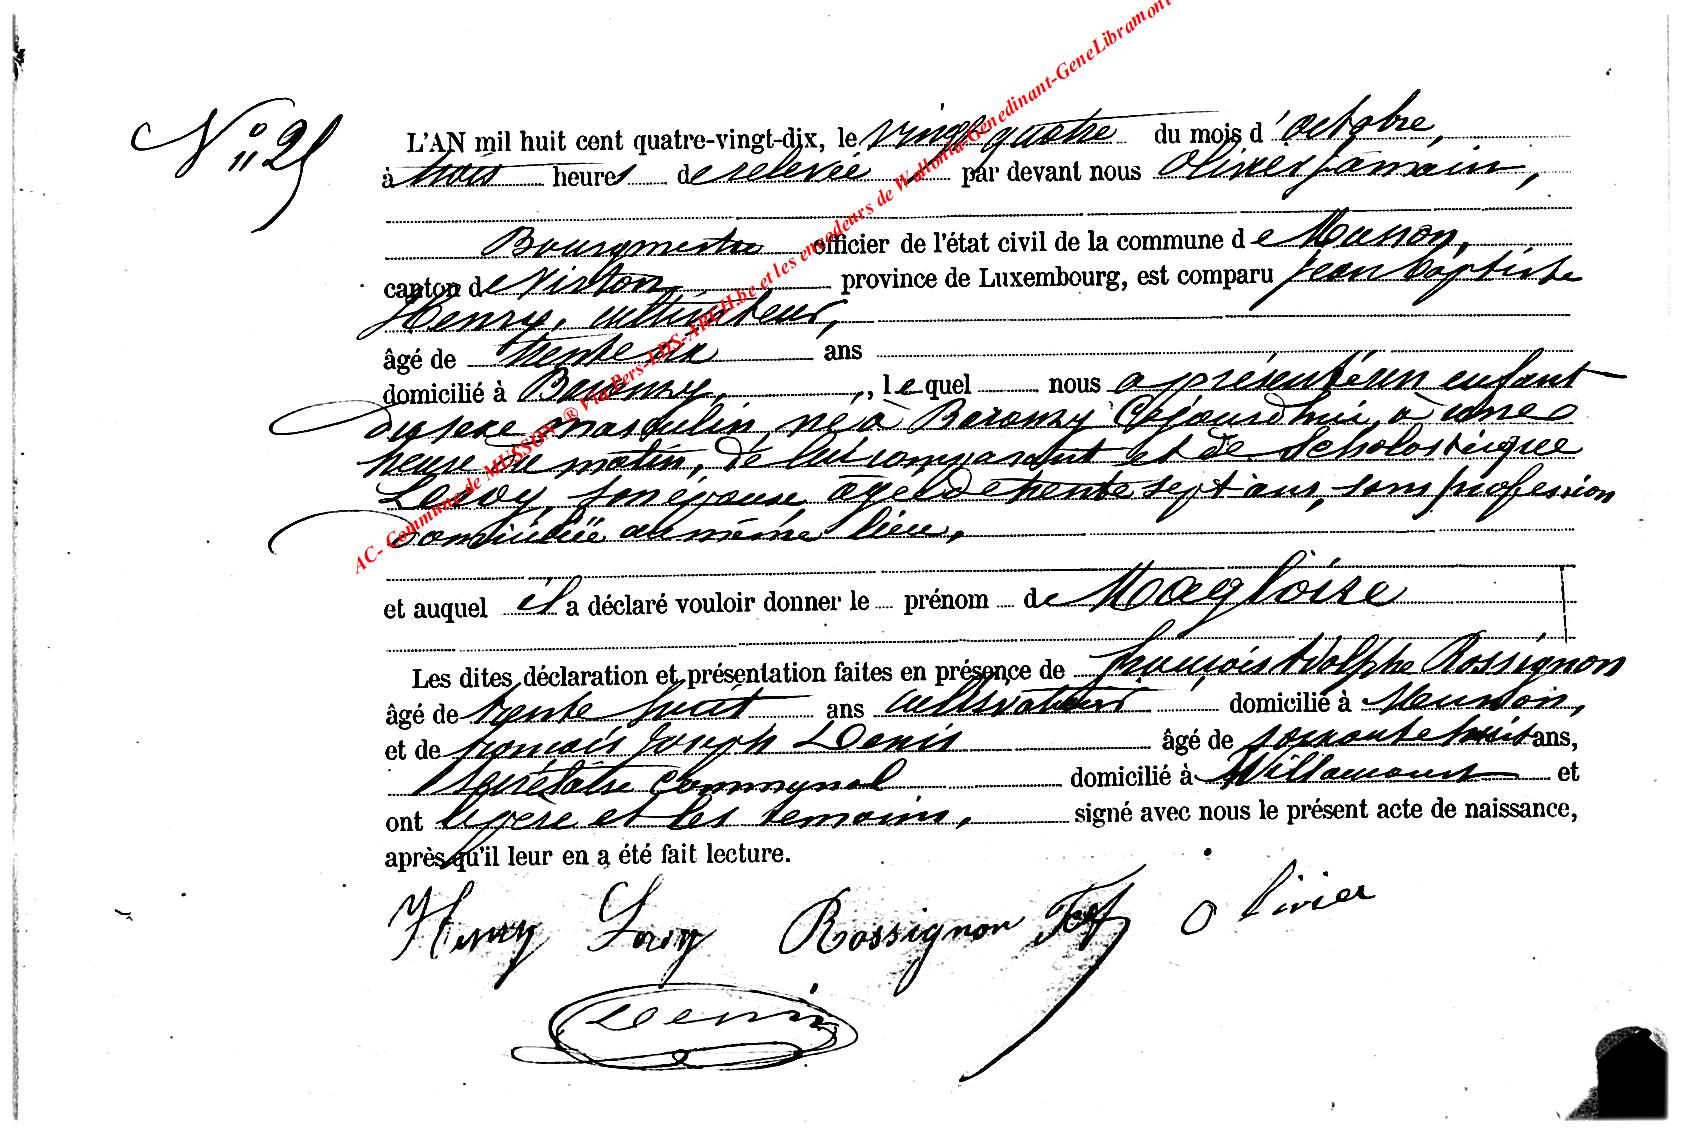 N° 25
L'AN mil huit cent quatre-vingt-dix, le vingt quatre du mois d'octobre,
à trois heures de relevée par devant nous Olivier Jamain,
Bourgmestre officier de l'état civil de la commune de Musson,
canton de Virton province de Luxembourg, est comparu Jean Baptiste
Henry, cultivateur,
âgé de trente six ans
domicilié à Baranzy, lequel nous a présenté un enfant
du sexe masculin, né à Baranzy Cejourd'hui à une
heure du matin, de lui comparant et de Scholastique
Leroy, son épouse, agée de trente sept ans, sans profession
domiciliée au même lieu,
et auquel il a déclaré vouloir donner le prénom de Magloire
Les dites déclaration et présentation faites en présence de françois Adolphe Rossignon
âgé de trente huit ans cultivateur domicilié à Musson,
et de françois Joseph Denis âgé de soixante huit ans,
secrétaire communal domicilié à Willancourt et
ont le père et les témoins, signé avec nous le présent acte de naissance,
après qu'il leur en a été fait lecture.
Henry Rossignon Olivier
Denis
AC- Commune de MUSSON ® Via Pers-LDS-ARCH.be et les encodeurs de Wallonia-Genedinant-GeneLibramont